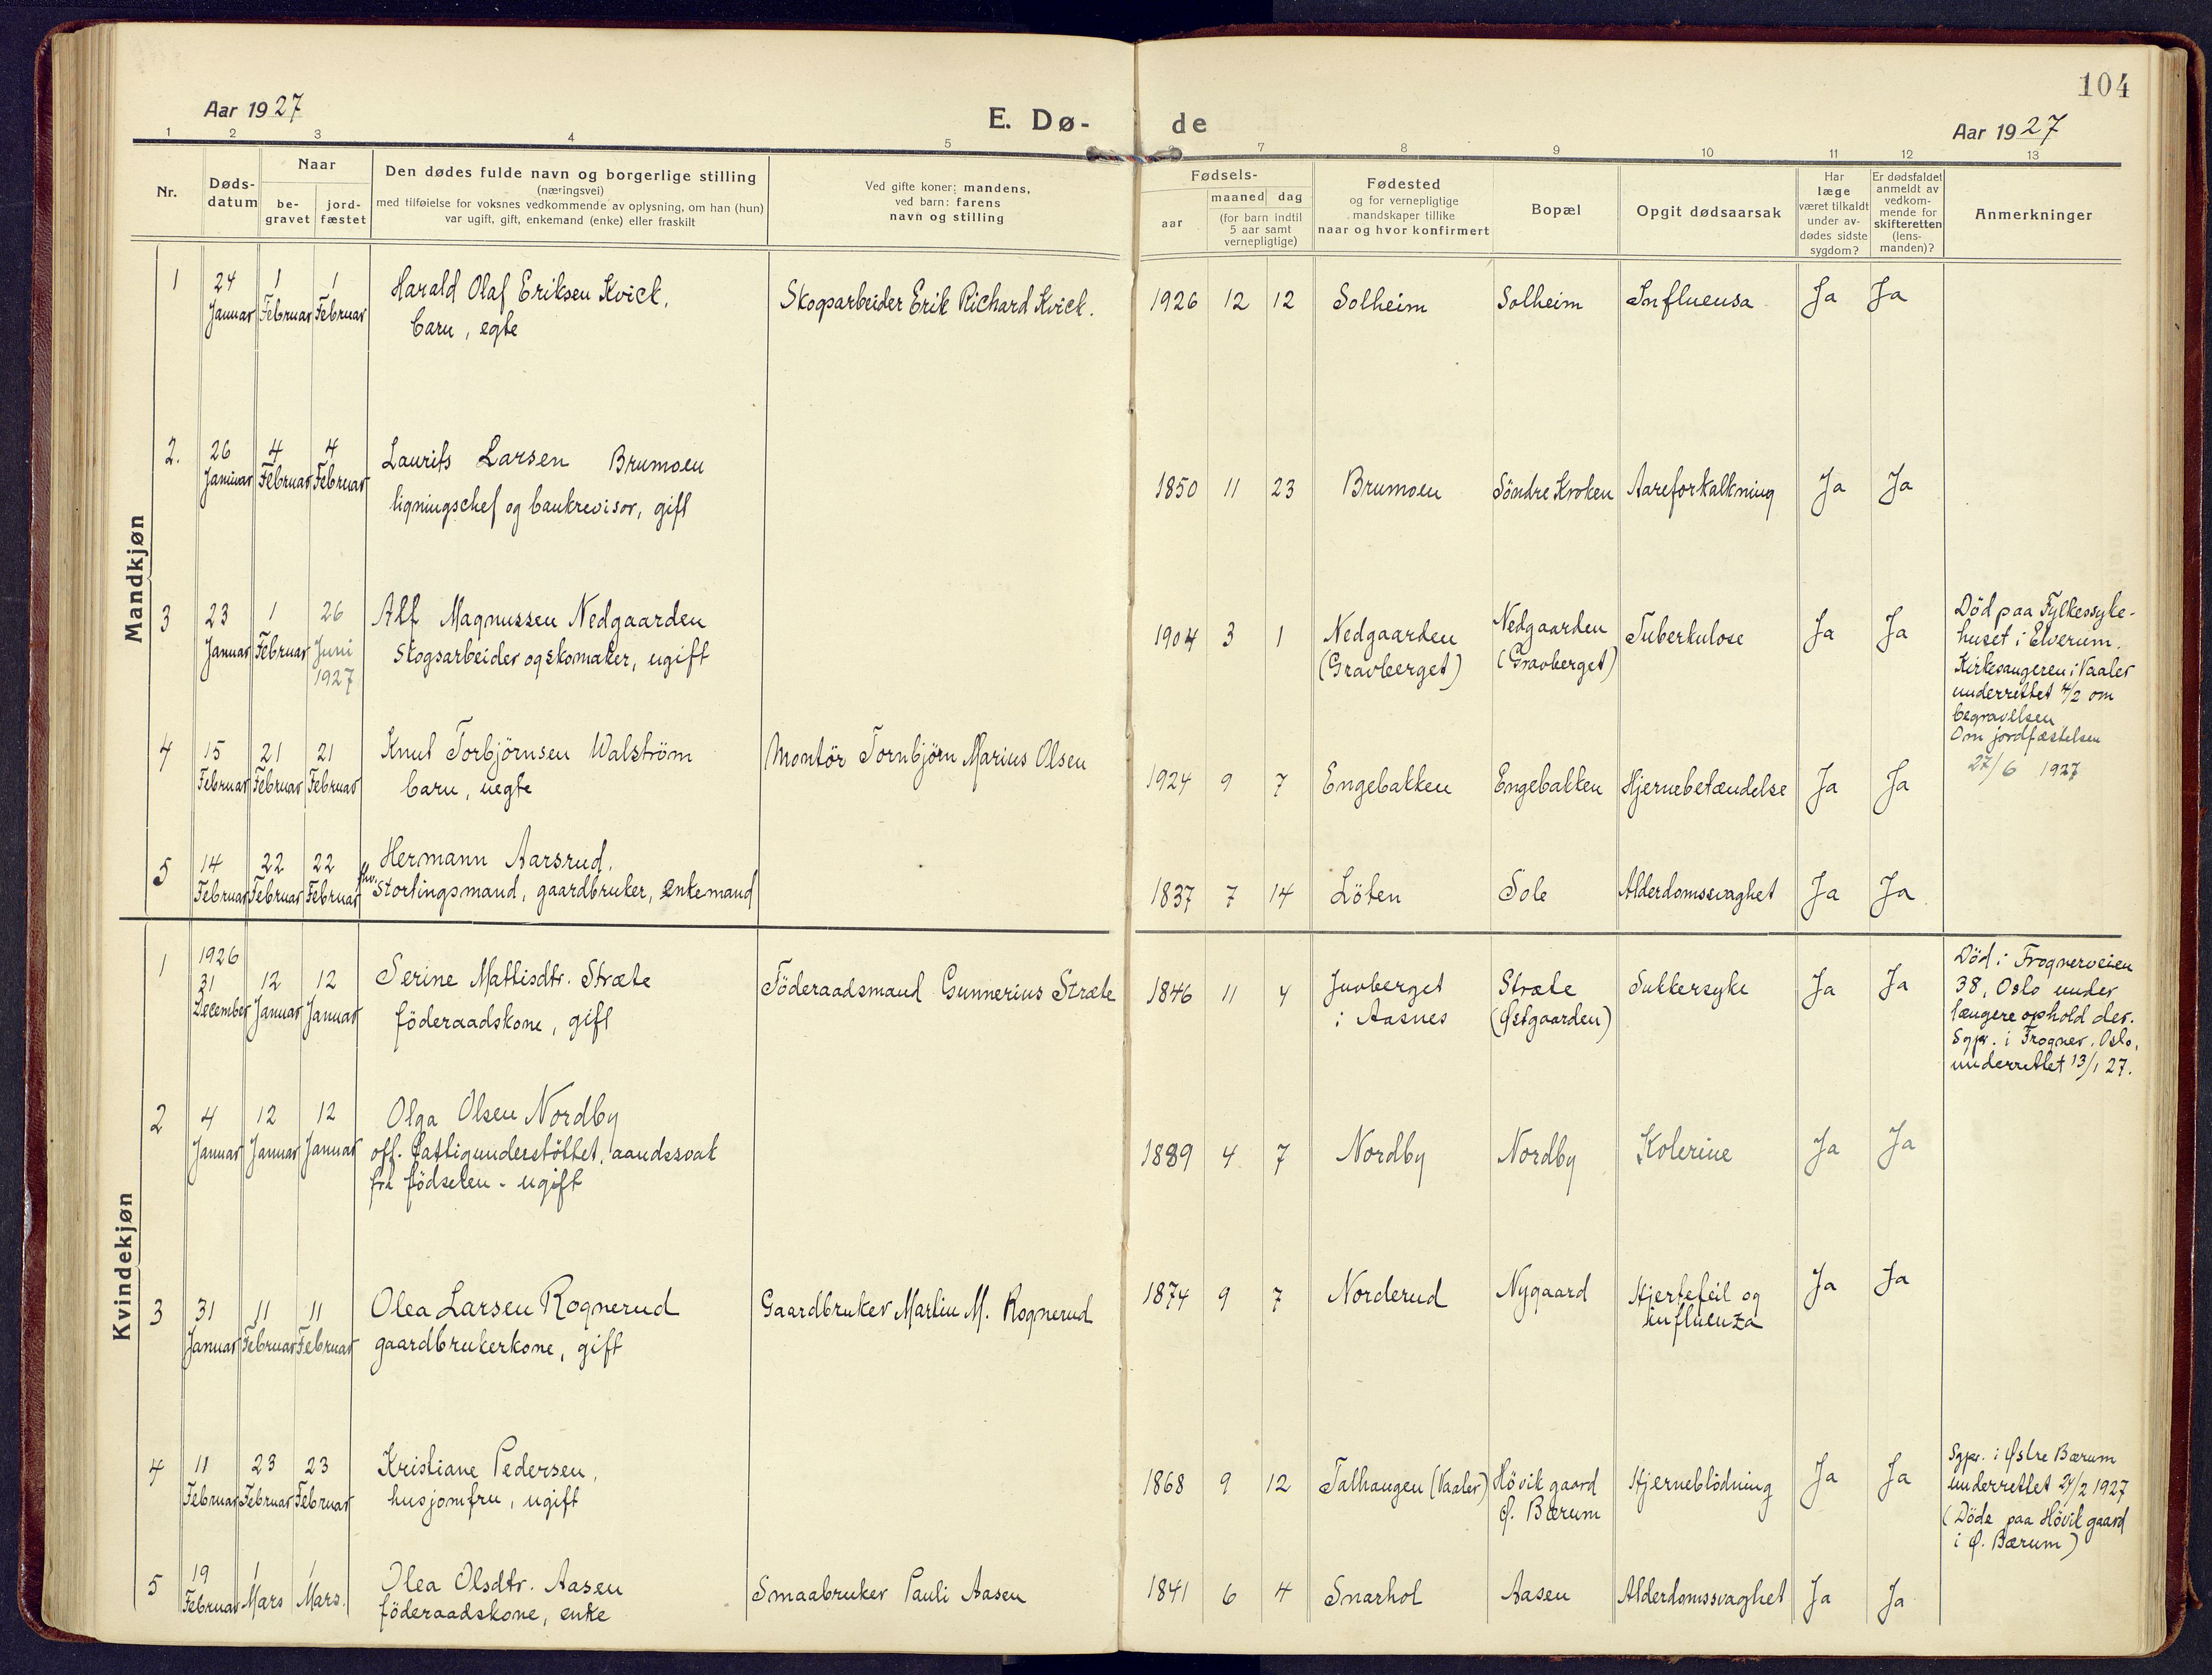 104
Aar 1927
E. Dø-
de
Aar 1927
1 2 3 4 5 6 7 8 9 10 11 12 13
Nr.
Døds-
datum
Naar
be-
gravet
jord-
fæstet
Den dødes fulde navn og borgerlige stilling
(næringsvei)
med tilføielse for voksnes vedkommende av oplysning, om han (hun)
var ugift, gift, enkemand (enke) eller fraskilt
Ved gifte koner: mandens,
ved barn: farens
navn og stilling
Fødsels-
aar
maaned dag
(for barn indtil
5 aar samt
vernepligtige)
Fødested
og for vernepligtige
mandskaper tillike
naar og hvor konfirmert
Bopæl
Opgit dødsaarsak
Har
læge
været tilkaldt
under av-
dødes sidste
sygdom?
Er dødsfaldet
anmeldt av
vedkom-
mende for
skifteretten
(lens-
manden)?
Anmerkninger
Mandkjøn
1
24
Januar
1
Februar
1
Februar
Harald Olaf Eriksen Kvick.
barn, egte
Skogsarbeider Erik Richard Kvick.
1926 12 12 Solheim Solheim Influensa Ja Ja
2.
26
Januar
4
Februar
4
Februar
Laurits Larsen Brumoen
ligningschef og bankrevisor, gift
1850 11 23 Brumoen Söndre Kroken Aareforkalkning Ja Ja
3
23
Januar
1
Februar
26
Juni
1927
Alf Magnussen Nedgaarden
Skogsarbeider og skomaker, ugift
1904 3 1
Nedgaarden
(Gravberget)
Nedgaarden
(Gravberget)
Tuberkulose Ja Ja
Död paa Fylkessyke-
huset i Elverum.
Kirkesangeren i Vaaler
underrettet 4/2 om
begravelsen
Om jordfæstelsen
27/6 1927
4
15
Februar
21
Februar
21
Februar
Knut Torbjörnsen Walström
barn, uegte
Montör Tornbjörn Marius Olsen
1924 9 7 Engebakken Engebakken Hjernebetændelse Ja Ja
5
14
Februar
22
Februar
22
Februar
Hermann Aarsrud.
fhv. Stortingsmand, gaardbruker, enkemand
1837 7 14 Löten Sole Alderdomssvaghet Ja Ja
Kvindekjøn
1
1926
31
December
12
Januar
12
Januar
Serine Mattisdtr. Stræte
föderaadskone, gift
Föderaadsmand Gunnerius Stræte
1846 11 4
Juvberget
i Aasnes
Stræte
(Østgaarden)
Sukkersyke Ja Ja
Död i Frognerveien
38, Oslo under
længere ophold der.
Sgpr. i Frogner, Oslo,
underrettet 13/1 27.
2
4
Januar
12
Januar
12
Januar
Olga Olsen Nordby
off. fattigunderstöttet, aandssvak
fra födselen - ugift
1889 4 7 Nordby Nordby Kolerine Ja Ja
3
31
Januar
11
Februar
11
Februar
Olea Larsen Rognerud
gaardbrukerkone, gift
Gaardbruker Martin M. Rognerud
1874 9 7 Norderud Nygaard
Hjertefeil og
influenza
Ja Ja
4
11
Februar
23
Februar
23
Februar
Kristiane Pedersen,
husjomfru, ugift
1868 9 12 Talhaugen (Vaaler)
Hövik gaard
Ø. Bærum
Hjerneblödning Ja Ja
Sgpr. i Østre Bærum
underrettet 24/2 1927
(Döde paa Hövik gaard
i Ø. Bærum)
5
19
Februar
1
Mars
1
Mars.
Olea Olsdtr. Aasen
föderaadskone, enke
Smaabruker Pauli Aasen
1841 6 4 Snarhol Aasen Alderdomssvaghet Ja Ja